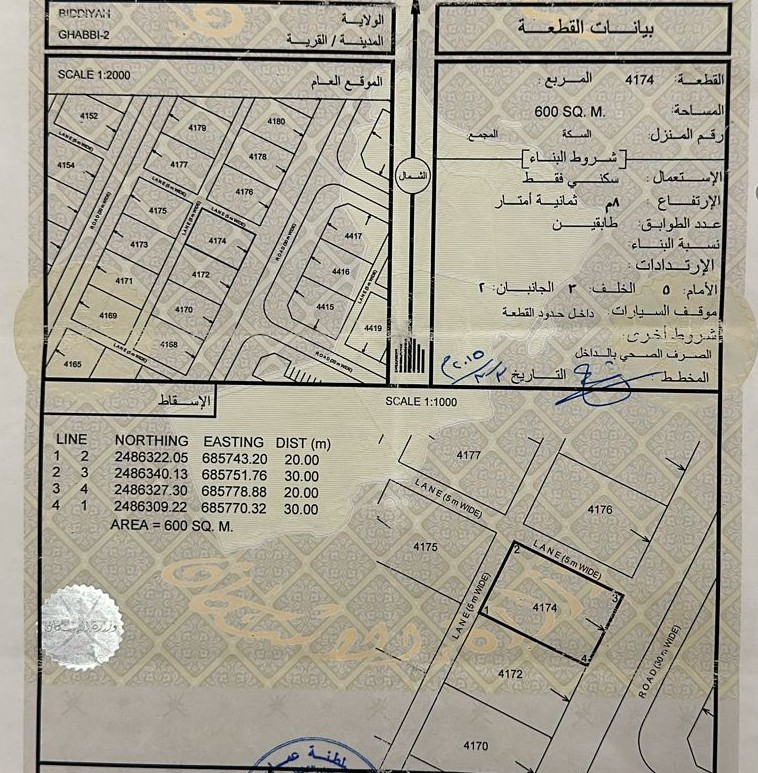 BIDDIYAH
الولاية
GHABBI-2
المدينة / القرية
SCALE 1:2000
الموقع العام
4152
4154
LANE (5m WIDE)
ROAD (30 m WIDE)
4179
4180
4177
4178
4176
LANE (5m WIDE)
LANE (5m WIDE)
LANE (5m WIDE)
4175
4174
4173
4172
4171
4170
4169
4168
4165
LANE (5m WIDE)
4417
4416
4415
4419
LANE (5m WIDE)
الشمال
بيانات القطعة
القطعة: 4174 المربع:
المساحة: 600 SQ. M.
رقم المنزل: السكة المجمع
شروط البناء
الإستعمال: سكني فقط
الإرتفاع: ٨م ثمانية أمتار
عدد الطوابق: طابقين
نسبة البناء:
الإرتدادات:
الأمام: ٥ الخلف: ٣ الجانبان: ٢
موقف السيارات: داخل حدود القطعة
شروط أخرى:
الصرف الصحي بالداخل
المخطط: التاريخ
الإسقاط
SCALE 1:1000
LINE NORTHING EASTING DIST (m)
1 2 2486322.05 685743.20 20.00
2 3 2486340.13 685751.76 30.00
3 4 2486327.30 685778.88 20.00
4 1 2486309.22 685770.32 30.00
AREA = 600 SQ. M.
4177
LANE (5m WIDE)
4176
4175
LANE (5m WIDE)
2
3
1
4
4174
LANE (5m WIDE)
4172
ROAD (30 m WIDE)
4170